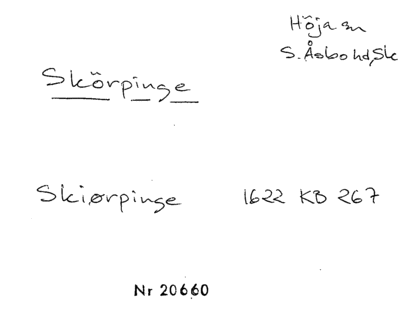 Höja sn
S. Åsbo hd, Sk
Skörpinge
Skiørpinge 1622 KB 267
Nr 20660